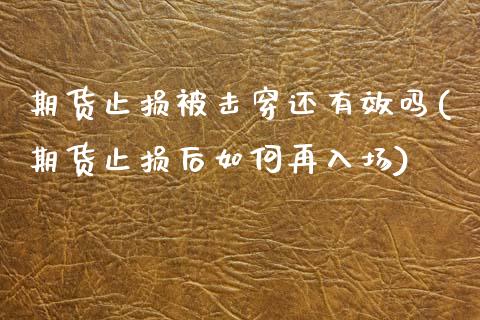 期货止损被击穿还有效吗(
期货止损后如何再入场)